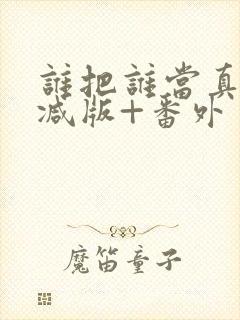 誰把誰當真
減版+番外
魔笛童子